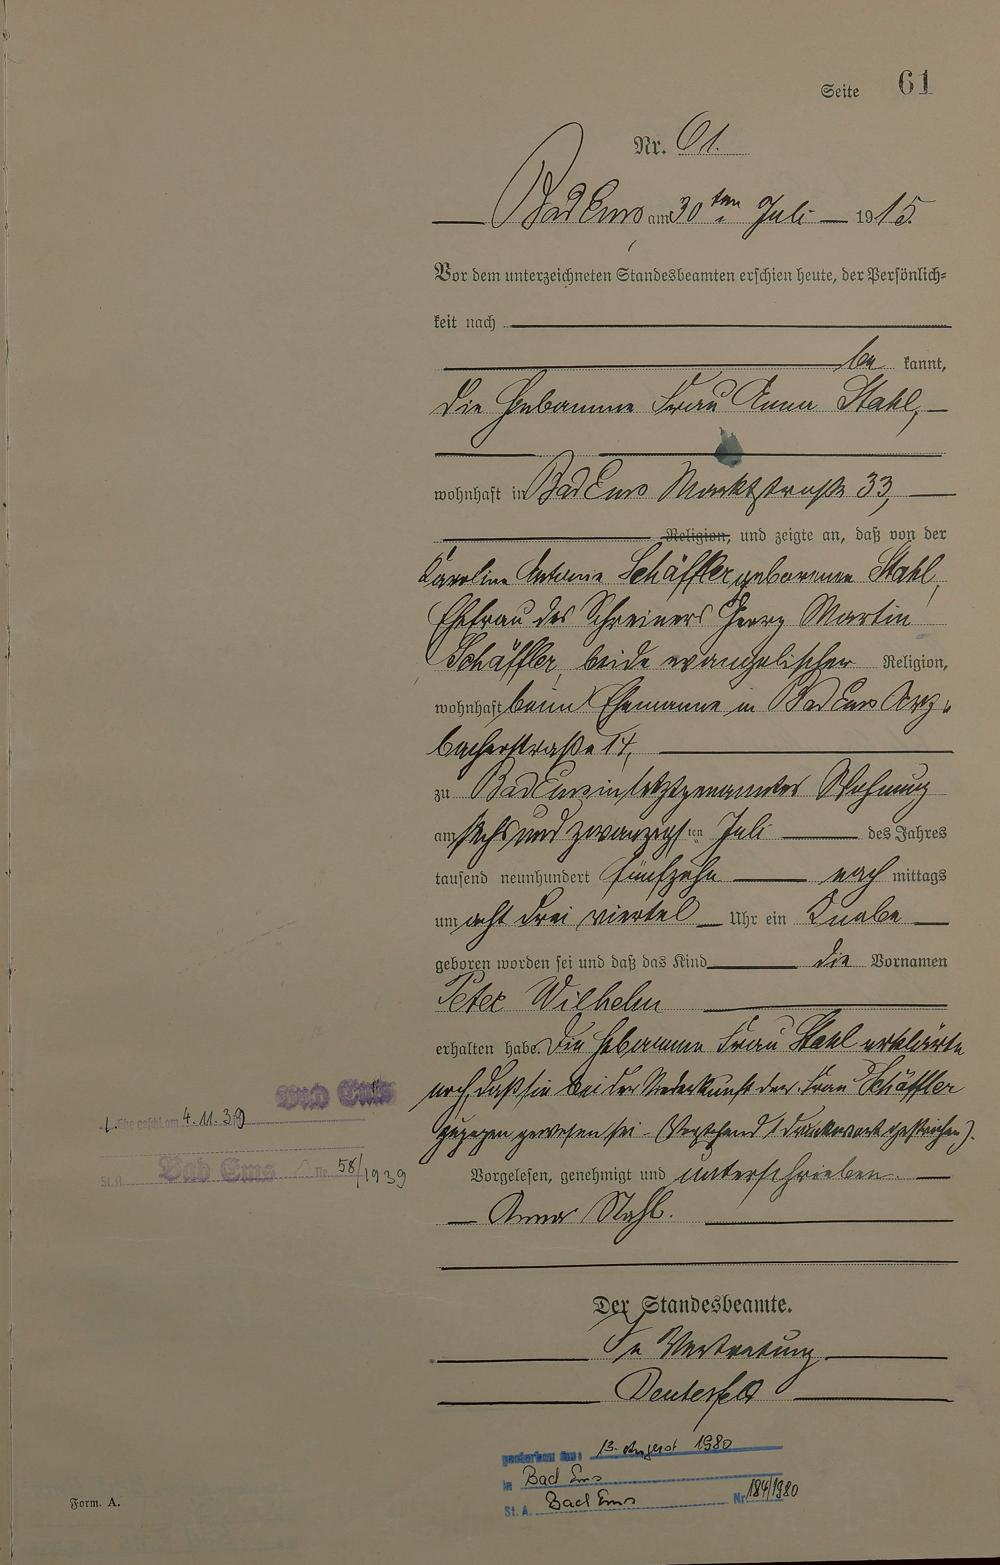 Seite 61
Nr. 61.
Bad Ems am 30ten Juli 1915.
Vor dem unterzeichneten Standesbeamten erschien heute, der Persönlich=
keit nach
be kannt,
die Hebamme Frau Anna Stahl,
wohnhaft in Bad Ems Marktstraße 33,
Religion, und zeigte an, daß von der
Karoline Antonie Schäffler geborenen Stahl,
Ehefrau des Schreiners Georg Martin
Schäffler, beide evangelischer Religion,
wohnhaft beim Ehemanne in Bad Ems Arz=
bacherstraße 14,
zu Bad Ems in letztgenannter Wohnung
am sechs und zwanzigsten Juli des Jahres
tausend neunhundert fünfzehn nach mittags
um acht drei viertel Uhr ein Knabe
geboren worden sei und daß das Kind die Vornamen
Peter Wilhelm
erhalten habe. Die Hebamme Frau Stahl erklärte
noch, daß sie bei der Niederkunft der Frau Schäffler
zugegen gewesen sei. (Vorstehend 1 Druckwort gestrichen).
Vorgelesen, genehmigt und unterschrieben.
Anna Stahl.
Der Standesbeamte.
In Vertretung
1. Ehe geschl. am 4.11.39
Bad Ems
St. A. Bad Ems Nr. 58/1939
gestorben am: 13. August 1980
in Bad Ems
St. A. Bad Ems Nr. 184/1980
Form. A.